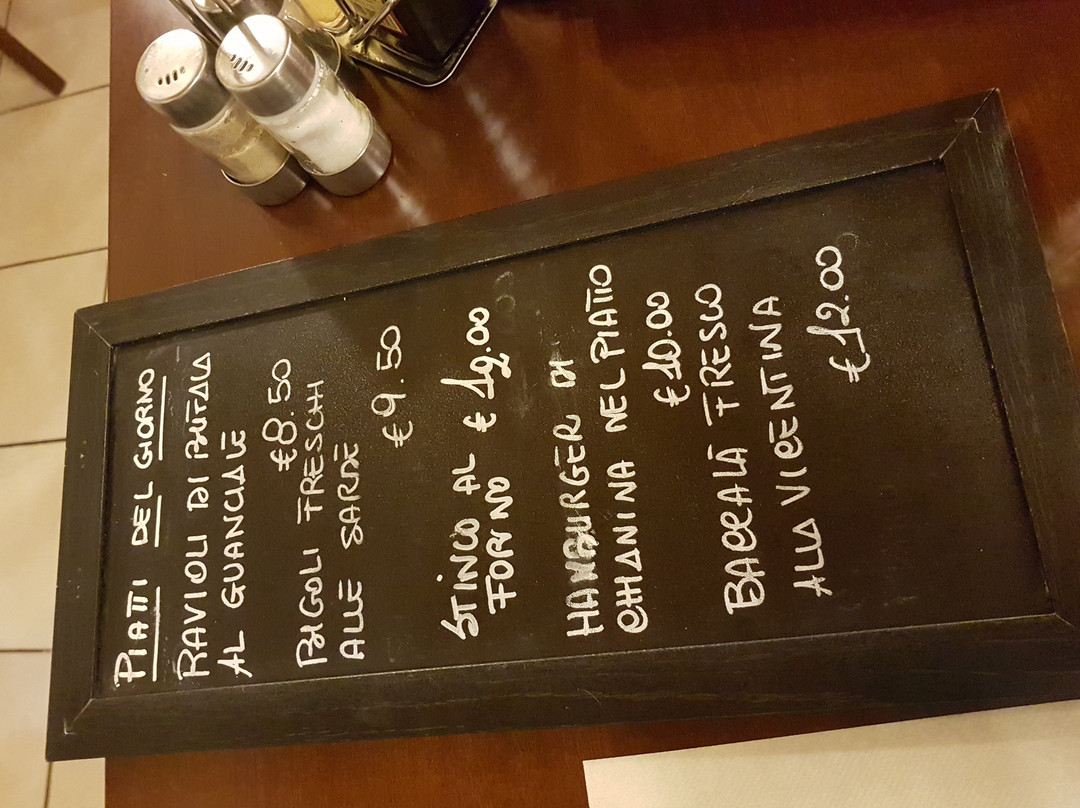 PIATTI DEL GIORNO
RAVIOLI DI BUFALA
AL GUANCIALE
€8.50
BIGOLI FRESCHI
ALLE SARDE
€9.50
STINCO AL € 12.00
FORNO
HAMBURGER DI
CHIANINA NEL PIATTO
€10.00
BACCALÀ FRESCO
ALLA VICENTINA
€12.00